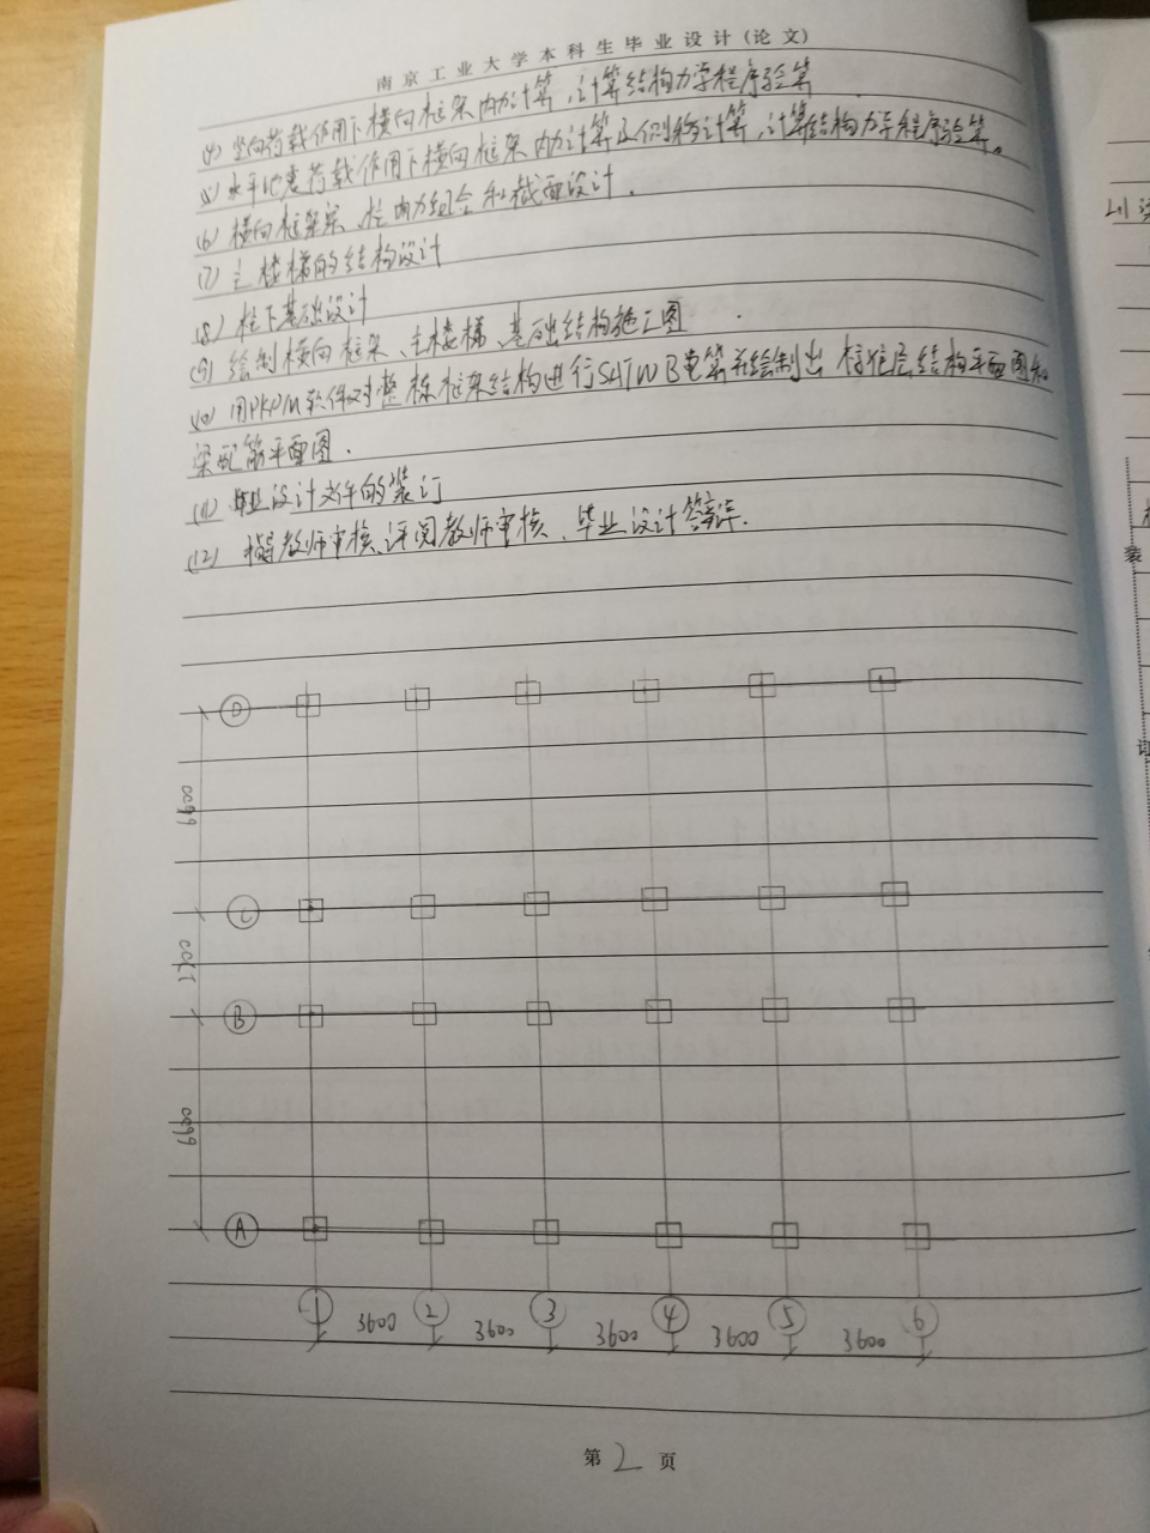 南京工业大学本科生毕业设计(论文)
(4) 竖向荷载作用下横向框架内力计算，计算结构力学程序验算
(5) 水平地震荷载作用下横向框架内力计算及侧移计算，计算结构力学程序验算。
(6) 横向框架梁、柱内力组合和截面设计.
(7) 主楼梯的结构设计
(8) 柱下基础设计
(9) 绘制横向框架、主楼梯、基础结构施工图
(10) 用PKPM软件对整栋框架结构进行SATWB电算并绘制出标准层结构平面图和
梁配筋平面图.
(11) 毕业设计文件的装订
(12) 指导教师审核、评阅教师审核、毕业设计答辩.
D
6600
C
B
6600
A
1 2 3 4 5 6
3600 3600 3600 3600 3600
第2页
装
订